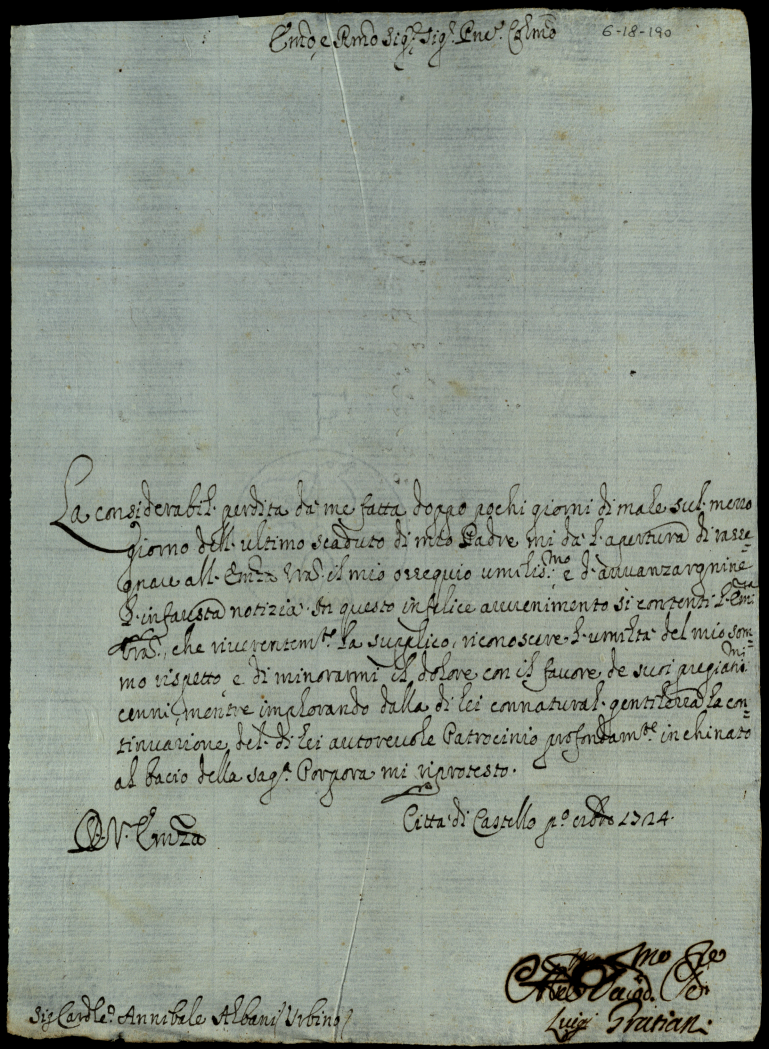 Emo e Rmo Sigr. Sigr. Pne. Colmo
6-18-190
La considerabil. perdita da me fatta doppo pochi giorni di male sul. mezzo
giorno dell. ultimo scaduto di mio Padre mi da l. apertura di rasse=
gnare all. Emza Vra. il mio ossequio umilis.mo e d. avvanzargnine
l. infausta notizia. In questo infelice avvenimento si contenti l. Emza
Vra., che riverentem.te la supplico, riconoscere l. umilta del mio som=
mo rispetto e di minorarmi il dolore con il favore de suoi pregiatis.mi
cenni, mentre implorando dalla di lei connatural. gentilezza la con=
tinuazione del. di lei autorevole Patrocinio profondam.te inchinato
al bacio della sag.a Porpora mi riprotesto.
Di V. Emza
Citta di Castello p.o 1724.
Sig Cardle. Annibale Albani / Urbino /
Luigi Gratiani